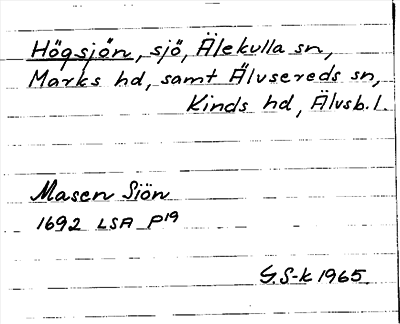 Högsjön, sjö, Älekulla sn,
Marks hd, samt Älvsereds sn,
Kinds hd, Älvsb. l.
Masen Siön
1692 LSA P19
G.S-k 1965.